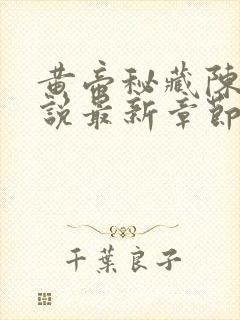 黄帝秘藏陳
說最新章節
千葉良子